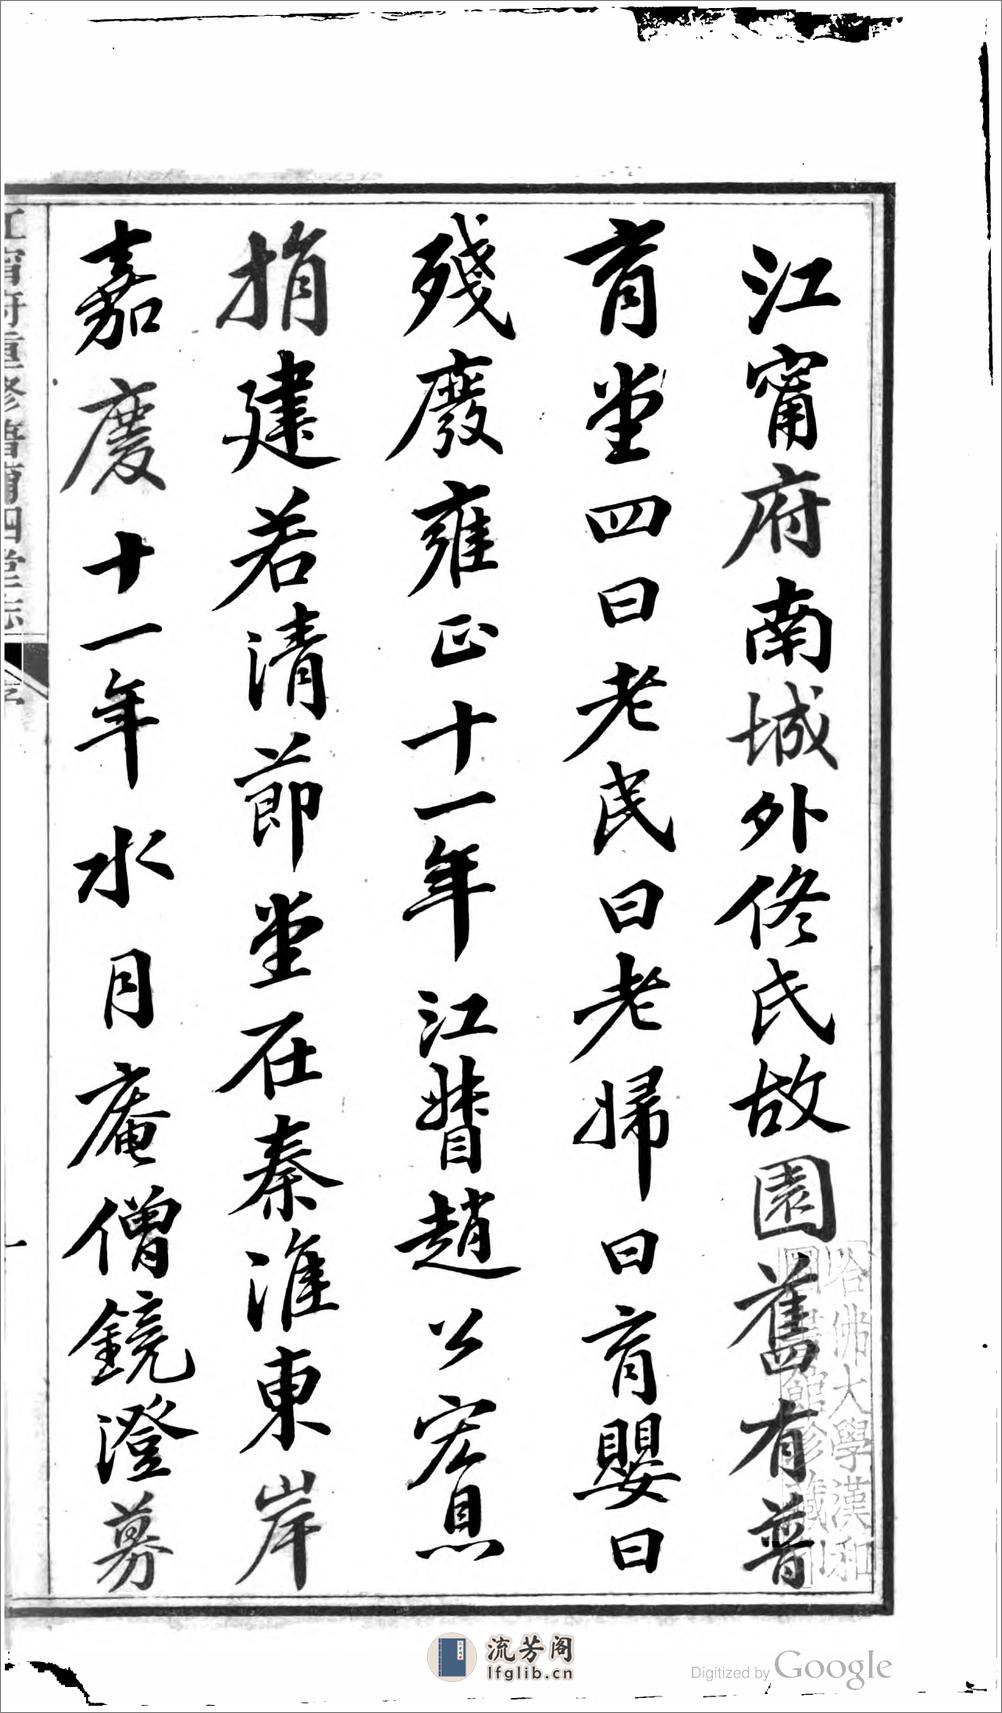 江甯府南城外佟氏故園舊有普
育堂四曰老民曰老婦曰育嬰曰
殘廢雍正十一年江督趙公宏恩
捐建若清節堂在秦淮東岸
嘉慶十一年水月庵僧鏡澄募
江甯府重修普育四堂志
序
一
哈佛大學漢和
圖書館珍藏印
流芳阁
lfglib.cn
Digitized by Google